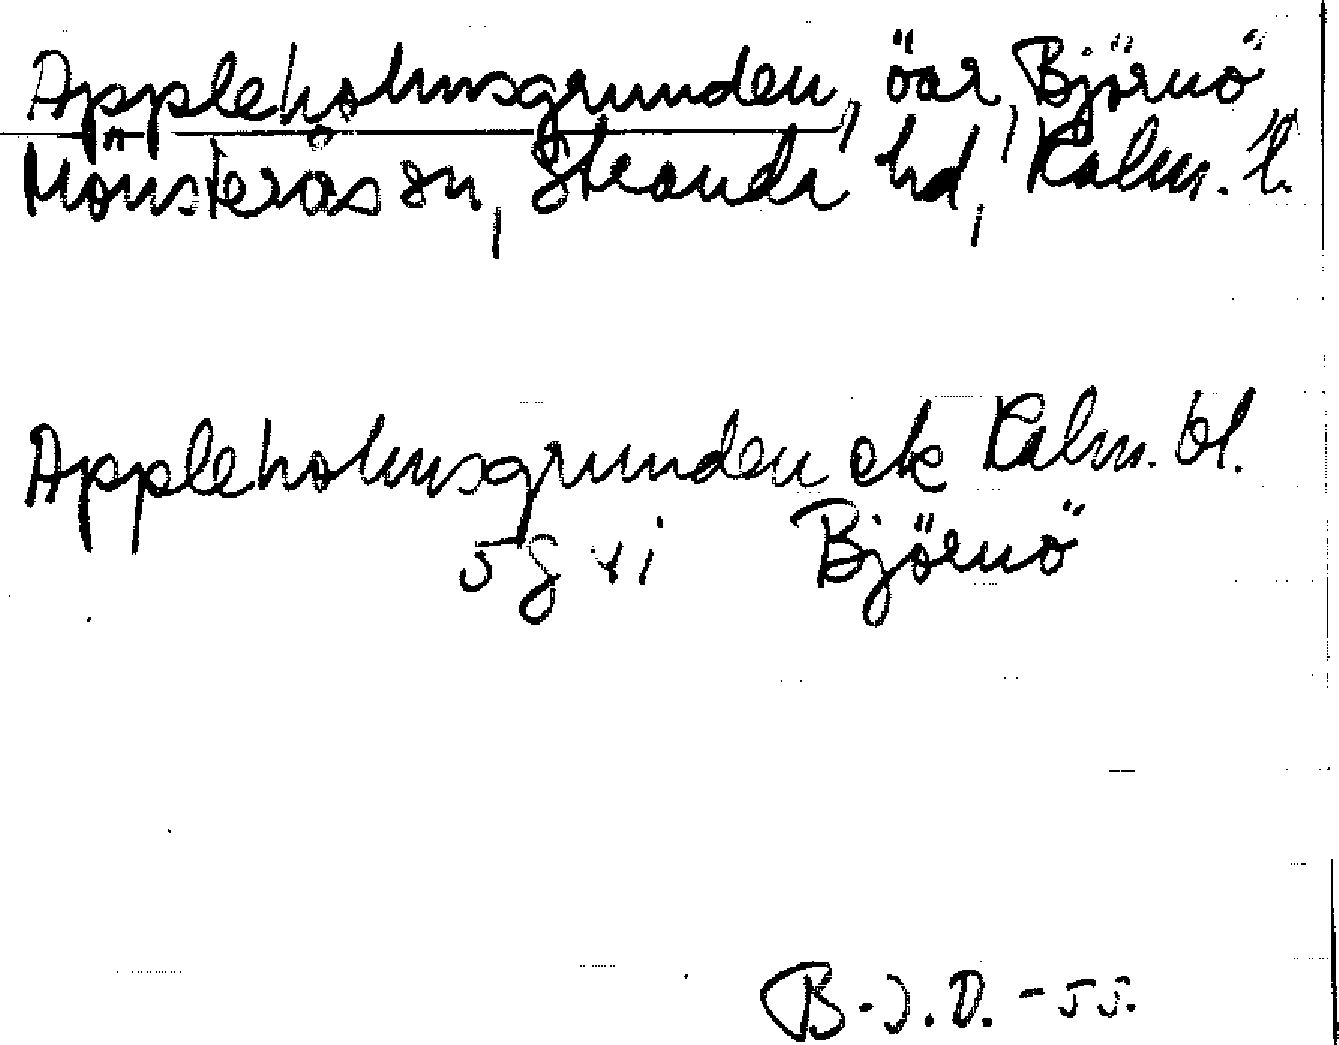 Appleholmsgrunden, öar, Björnö
Mönsterås sn, Stranda hd, Kalm. l.
Appleholmsgrunden ek Kalm. bl.
5g vi Björnö
B-J.D. -55.